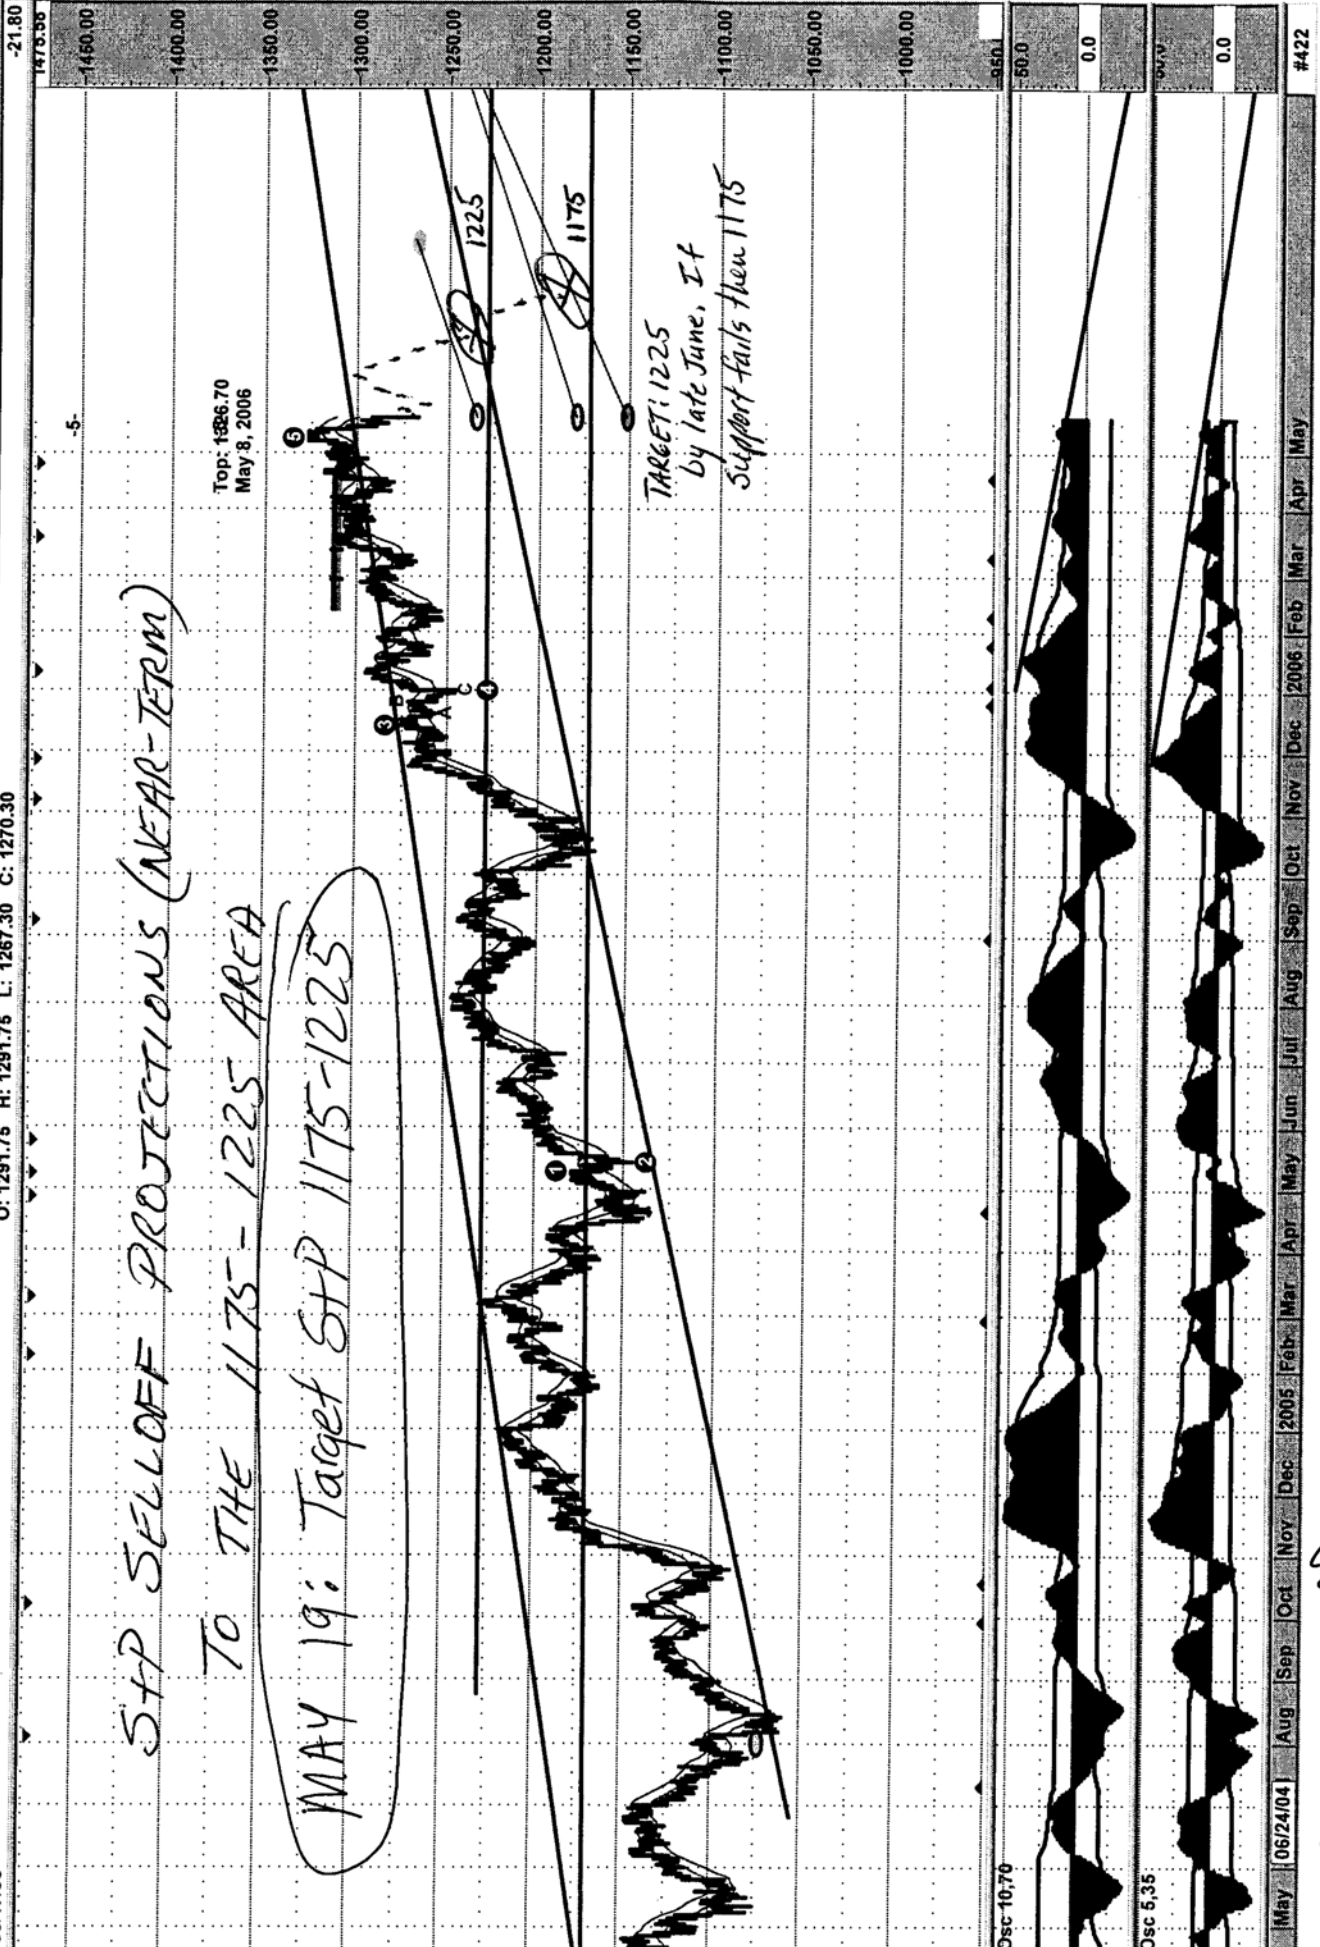 -21.80
O: 1291.75 H: 1291.75 L: 1267.30 C: 1270.30
S+P SELLOFF PROJECTIONS (NEAR-TERM)
TO THE 1175-1225 AREA
MAY 19: Target S+P 1175-1225
-5-
Top: 1326.70
May 8, 2006
5
3
B
A
C
4
1
2
1225
1175
TARGET: 1225
by late June. If
Support fails then 1175
1450.00
1400.00
1350.00
1300.00
1250.00
1200.00
1150.00
1100.00
1050.00
1000.00
950
Osc 10,70
50.0
0.0
Osc 5,35
0.0
May 06/24/04 Aug Sep Oct Nov Dec 2005 Feb Mar Apr May Jun Jul Aug Sep Oct Nov Dec 2006 Feb Mar Apr May
#422